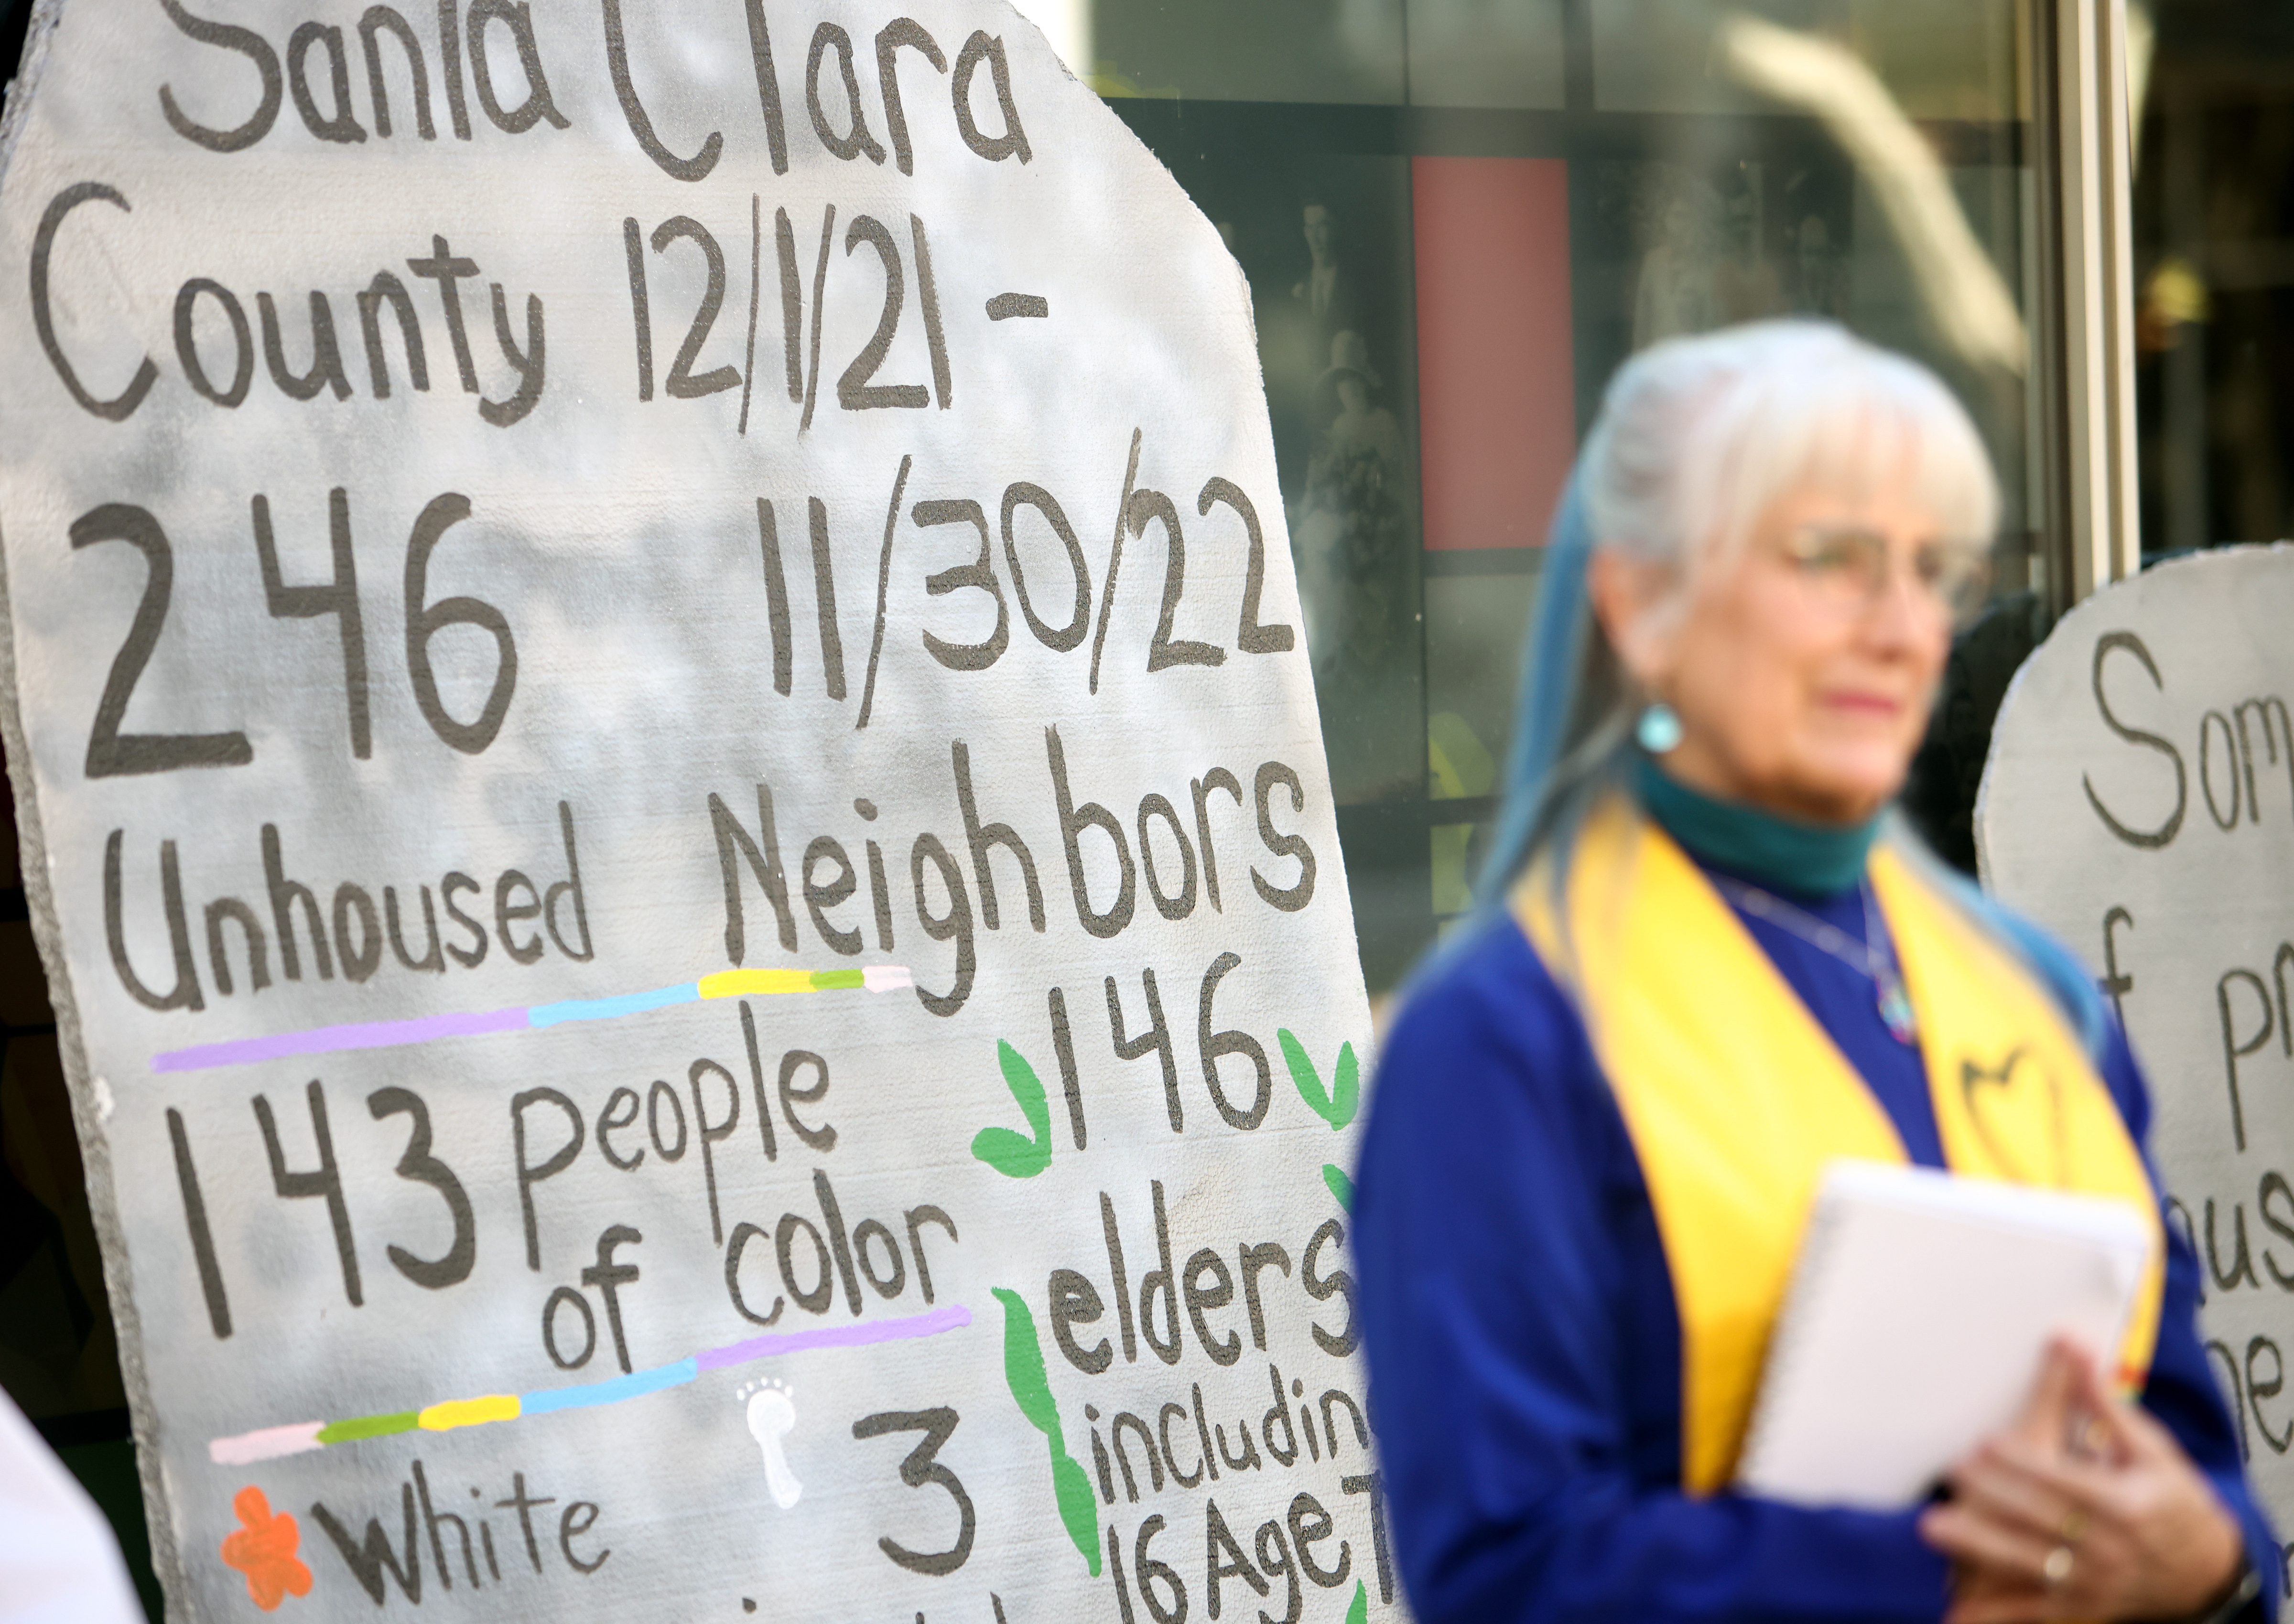 Santa Clara
County 12/1/21 -
246 11/30/22
Unhoused Neighbors
143 people
of color
146
elders
includin
16 Age
White
3
Som
f
pr